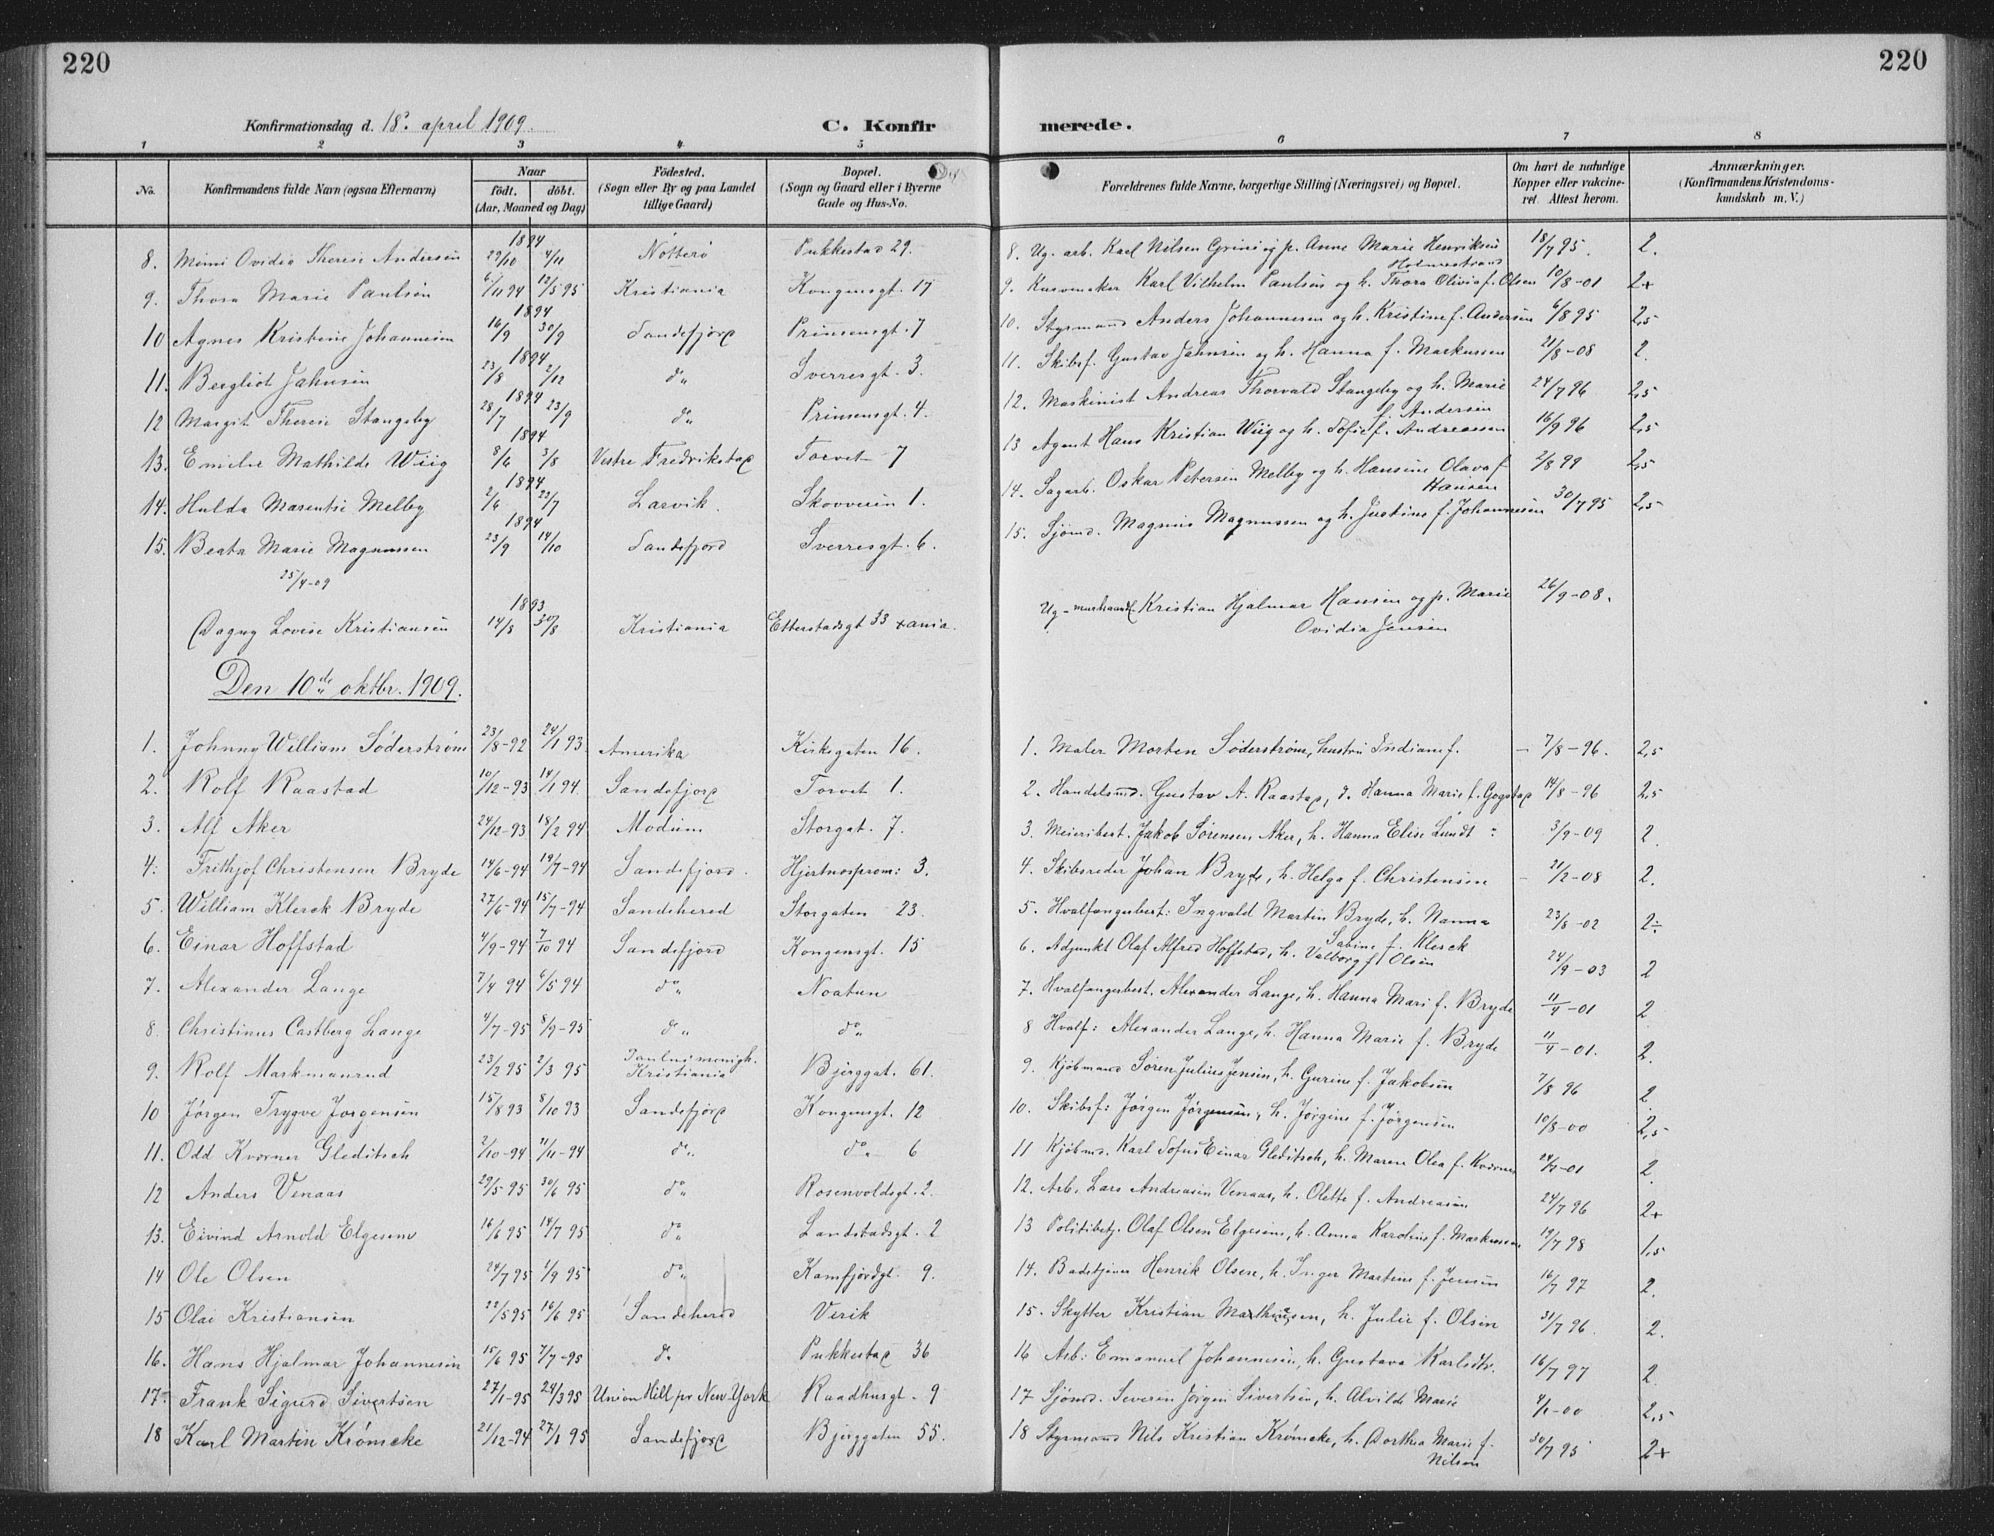 220
220
Konfirmationsdag d. 18. april 1909.
C. Konfir
merede.
1 2 3 4 5 6 7 8
No.
Konfirmandens fulde Navn (ogsaa Efternavn)
Naar
födt. döbt.
(Aar, Maaned og Dag)
Födested.
(Sogn eller By og paa Landet
tillige Gaard)
Bopæl.
(Sogn og Gaard eller i Byerne
Gade og Hus-No.
Forældrenes fulde Navne, borgerlige Stilling (Næringsvei) og Bopæl.
Om havt de naturlige
Kopper eller vakcine-
ret. Attest herom.
Anmærkninger.
(Konfirmandens Kristendoms-
kundskab m. V.)
1894
8. Mimi Ovidia Therese Andersen 29/10 4/11 Nötterö Pukkestad 29. 8. Ug. arb. Karl Nilsen Grini og p. Anne Marie Henriksen 18/7 95. 2.
Holmestrand
9. Thora Marie Paulsen 6/11 94 12/5 95 Kristiania Kongensgt. 17 9. Karl Vilhelm Paulsen og h. Thora Olivia f. Olsen 10/8-01 2+
1894
10 Agnes Kristine Johannesen 16/9 30/9 Sandefjord Prinsensgt. 7 10. Styrmand Anders Johannesen og h. Kristine f. Andersen 6/8 95 2,5
1894
11. Bergliot Jahnsen 23/8 2/12 do Sverresgt. 3. 11. Skibsf. Gustav Jahnsen og h. Hanna f. Markussen 21/8-08 2.
1894
12 Margit Therese Stangeby 28/7 23/9 do Prinsensgt. 4. 12. Maskinist Andreas Thorvald Stangeby og h. Marie 24/7 96 2,5
f. Andersen
1894
13. Emelie Mathilde Wiig 8/6 3/8 Vestre Fredrikstad Torvet 7 13 Agent Hans Kristian Wiig og h. Sofie f. Andreassen 16/9 96 2,5
1894
14. Hulda Marentse Melby 2/6 23/7 Larvik. Skovveien 1. 14. Sagarb. Oskar Petersen Melby og h. Hansine Olava f. 2/8 99 2,5
Hansen
1894
15. Beata Marie Magnussen 23/9 14/10 Sandefjord Sverresgt. 6. 15. Sjömd. Magnus Magnussen og h. Justine f. Johannesen 30/7 95 2,5
25/4-09
1893
Dagny Lovise Kristiansen 14/8 30/8 Kristiania Etterstadsgt 33 xania. Ug. Kristian Hjalmar Hansen og p. Marie 26/9-08.
Ovidia Jensen
Den 10de oktbr. 1909.
1. Johnny William Söderström 23/8-92 24/1 93 Amerika Kirkegaten 16. 1. Maler Morten Söderström, hustru Indiane f. — 7/8-96. 2,5
2. Rolf Raastad 10/12-93 14/1 94 Sandefjord Torvet 1. 2. Handelsmd. Gustav A. Raastad, h. Hanna Marie f. Gogstad 14/8-96 2,5
3. Alf Aker 24/12-93 18/2 94 Modum Storgat. 7. 3. Meieribest. Jakob Sörensen Aker, h. Hanna Elise Lundt 3/9-09 2.
4. Frithjof Christensen Bryde 14/6-94 19/7-94 Sandefjord. Hjertnesprom: 3. 4. Skibsreder Johan Bryde, h. Helga f. Christensen 21/2-08 2.
5. William Klerck Bryde 27/6-94 15/7-94 Sandeherred Storgaten 23. 5. Hvalfangerbest: Ingvald Martin Bryde, h. Nanna 23/8-02 2÷
Sabine f. Klerck
6. Einar Hoffstad 4/9-94 7/10 94 Sandefjord Kongensgt. 15 6. Adjunkt Olaf Alfred Hoffstad, h. Valborg f. Olsen 24/9-03 2
7. Alexander Lange 7/4 94 6/5 94 do Noatun 7. Hvalfangerbest. Alexander Lange, h. Hanna Mari f. Bryde 11/4-01 2
8. Christinus Castberg Lange 4/7-95 8/9-95 do do 8 Hvalf: Alexander Lange, h. Hanna Marie f. Bryde 11/4-01. 2.
9. Rolf Markmanrud 23/2 95 2/3 95 Paulus menigh. Kristiania Bjerggat. 61. 9. Kjöbmand Sören Julius Jensen, h. Gurine f. Jakobsen 7/8 96 2
10 Jörgen Trygve Jörgensen 15/8 93 8/10 93 Sandefjord Kongensgt. 12 10. Skibsf: Jörgen Jörgensen, h. Jörgine f. Jörgensen 10/8-00 2,5
11. Odd Kværner Gleditsch 2/10-94 11/11-94 do do 6 11 Kjöbmd. Karl Sofus Einar Gleditsch, h. Maren Olea f. Kværner 24/2-01 2.
12 Anders Venaas 29/5 95 30/6 95 do Rosenvoldsgt. 2. 12. Arb. Lars Andreasen Venaas, h. Olette f. Andreasen 24/7 96 2+
13. Eivind Arnold Elgesem 16/6 95 14/7 95 do Landstadsgt. 2 13 Politibetj. Olaf Olsen Elgesem, h. Anna Karoline f. Markussen 19/7 98 1,5
14 Ole Olsen 24/7 95 1/9 95 do Kamfjordgt. 9. 14. Badetjener Henrik Olsen, h. Inger Martine f. Jensen 16/7 97 2.
15 Olai Kristiansen 22/5 95 16/6 95 Sandeherred Virik 15. Skytter Kristian Mathisen, h. Julie f. Olsen 31/7 96. 2.
16. Hans Hjalmar Johannesen 15/6 95 7/7-95 do Pukkestad 36 16 Arb: Emanuel Johannesen, h. Gustava Karlsdtr. 16/7 97 2
17. Frank Sigurd Sivertsen 27/1-95 24/3 95 Union Hill pr New-York Raadhusgt. 9 17 Sjömd. Severin Jörgen Sivertsen, h. Alvilde Marie 4/1-00 2,5
18 Karl Martin Krömcke 21/12-94 27/1 95 Sandefjord Bjerggaten 55. 18 Styrmand Nils Kristian Krömcke, h. Dorthea Marie f. 30/7 95 2+
Nilsen